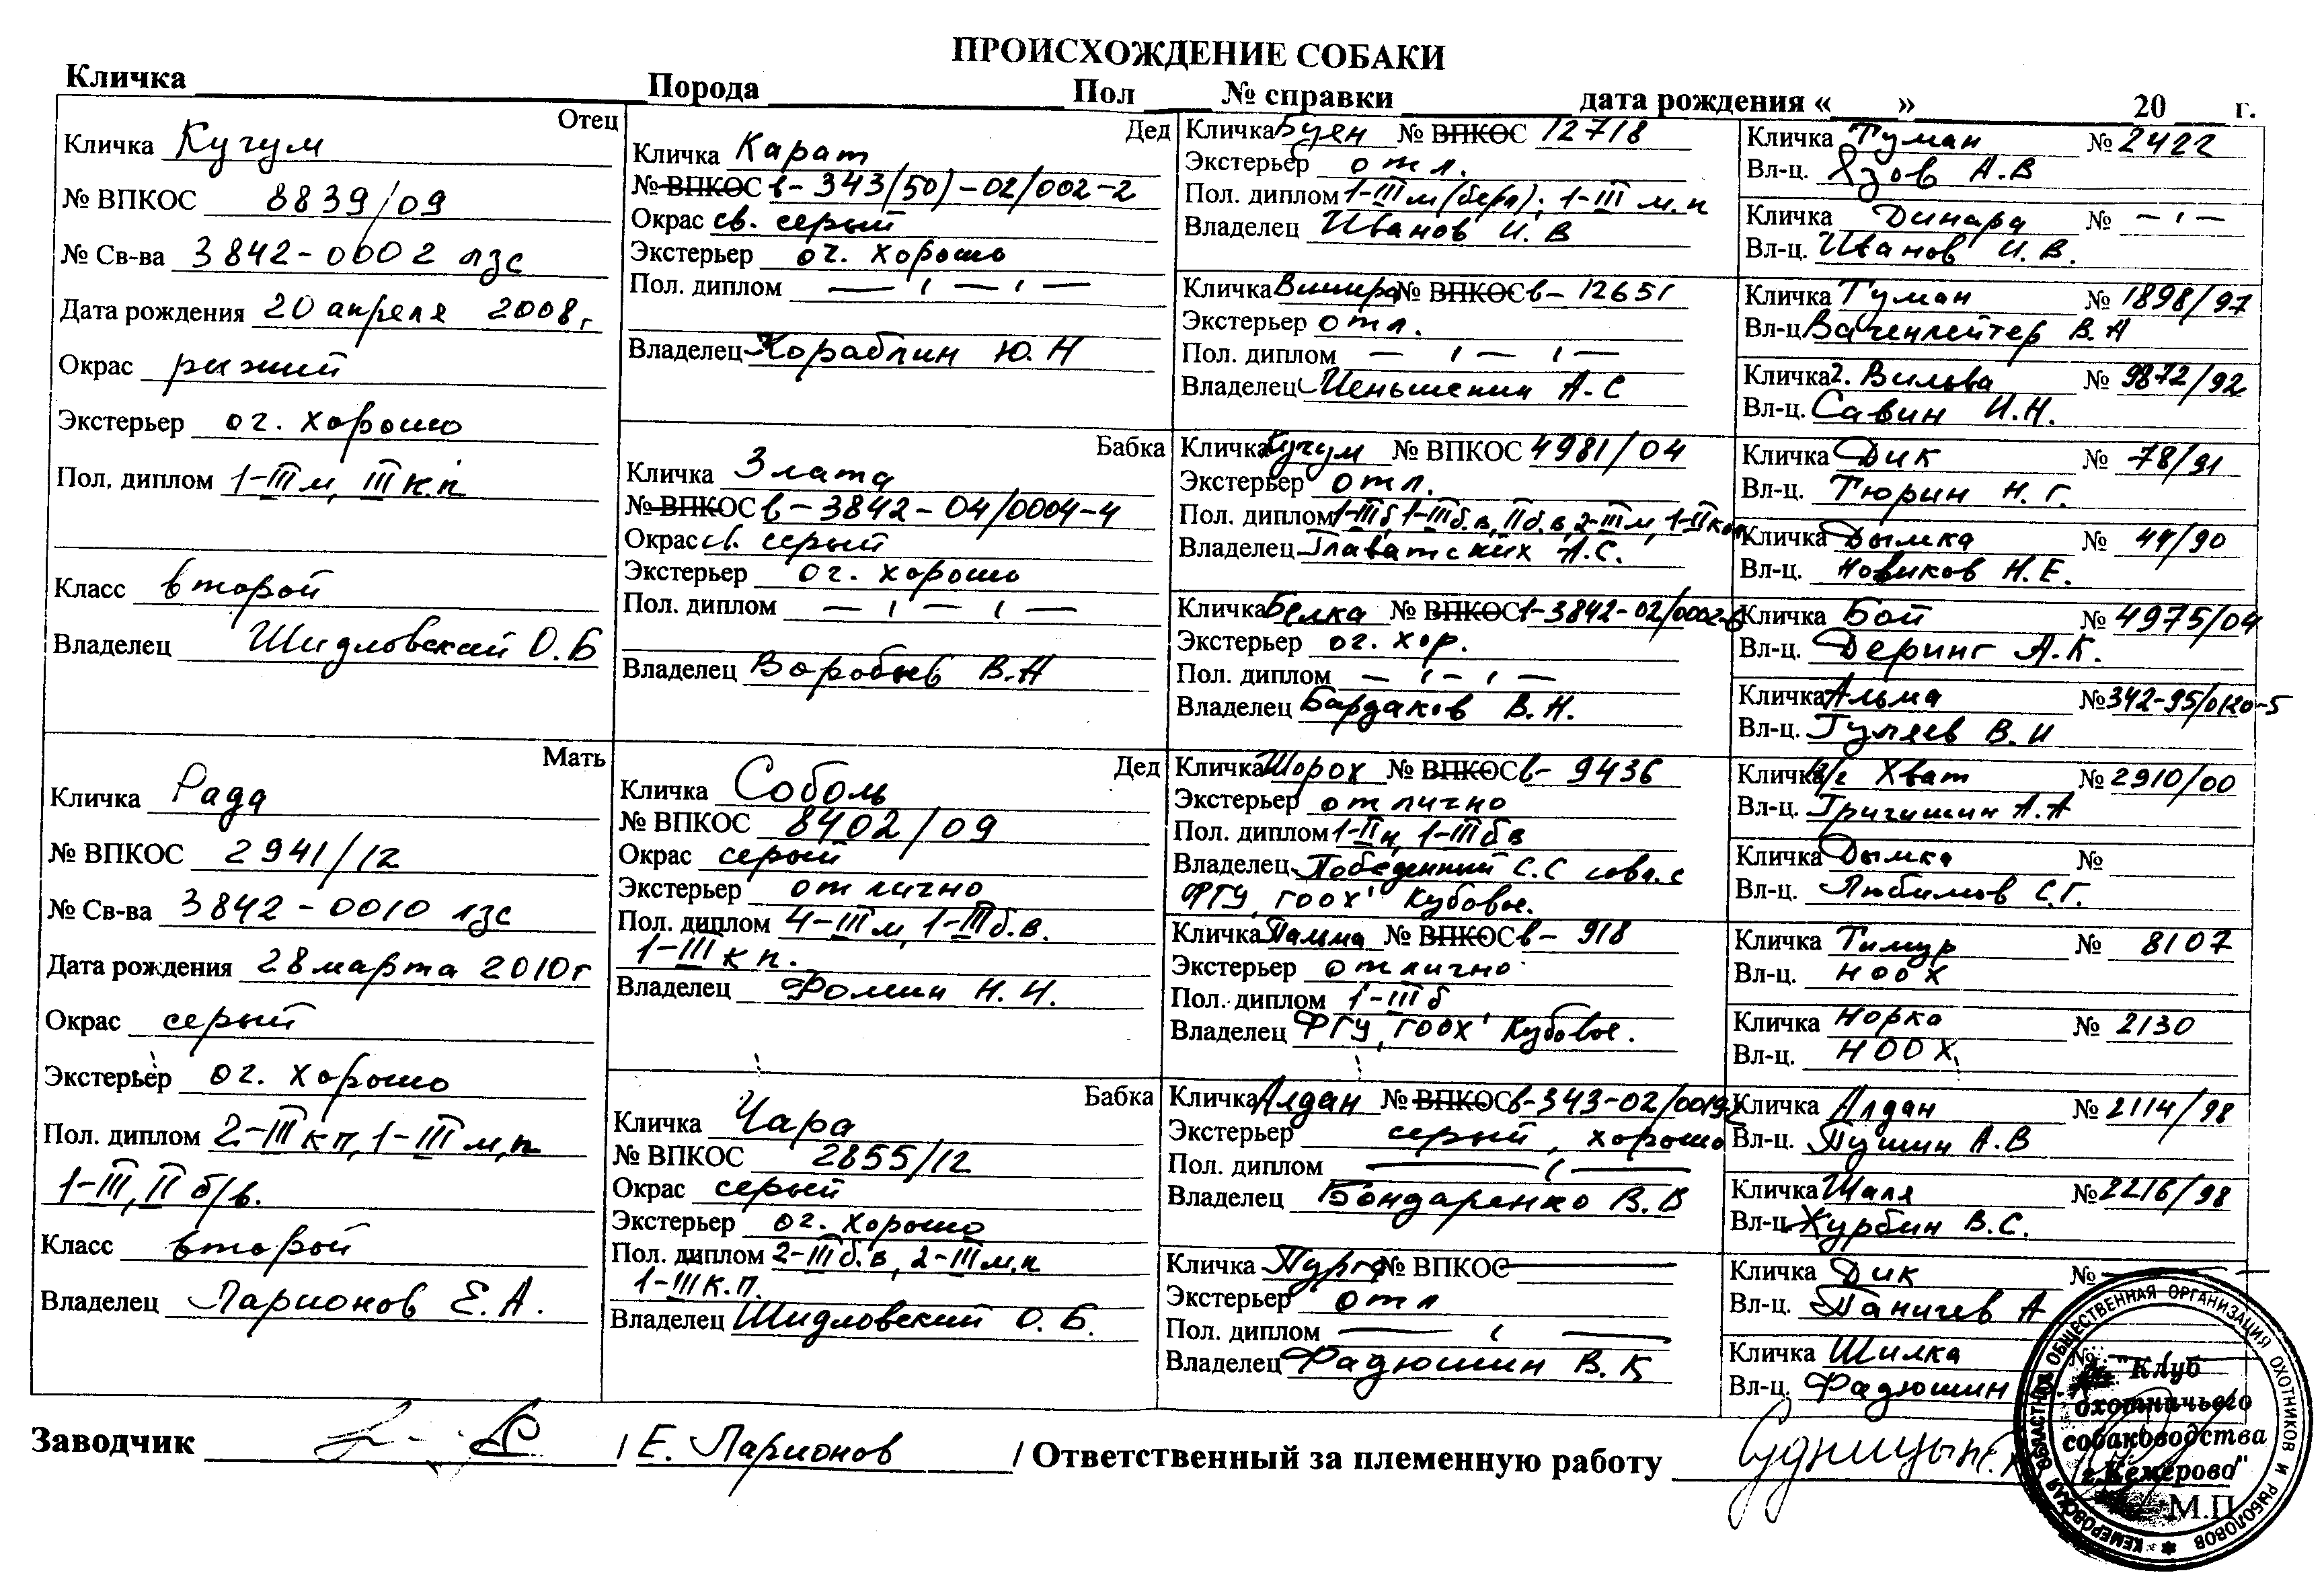 ПРОИСХОЖДЕНИЕ СОБАКИ
Кличка Порода Пол № справки дата рождения « » 20 г.
Отец
Кличка Кучум
№ ВПКОС 8839/09
№ Св-ва 3842-0002 лзс
Дата рождения 20 апреля 2008г
Окрас рыжий
Экстерьер оч. хорошо
Пол. диплом 1-III м, III к.п
Класс второй
Владелец Шидловский О.Б
Мать
Кличка Рада
№ ВПКОС 2941/12
№ Св-ва 3842-0010 лзс
Дата рождения 28 марта 2010г
Окрас серый
Экстерьер оч. хорошо
Пол. диплом 2-III кп, 1-III м,п
1-III, II б/в.
Класс второй
Владелец Ларионов Е.А.
Дед
Кличка Карат
№ ВПКОС в-343/50)-02/002-2
Окрас св. серый
Экстерьер оч. хорошо
Пол. диплом — ı — ı —
Владелец Кораблин Ю.Н
Бабка
Кличка Злата
№ ВПКОС в-3842-04/0004-4
Окрас св. серый
Экстерьер оч. хорошо
Пол. диплом — ı — ı —
Владелец Воробьев В.Н
Дед
Кличка Соболь
№ ВПКОС 8402/09
Окрас серый
Экстерьер отлично
Пол. диплом 4-III м, 1-III б.в.
1-III к п.
Владелец Фомин Н.И.
Бабка
Кличка Чара
№ ВПКОС 2855/12
Окрас серый
Экстерьер оч. хорошо
Пол. диплом 2-III б.в, 2-III м.п
1-III к.п.
Владелец Шидловский О.Б.
Кличка Буян № ВПКОС 12718
Экстерьер отл.
Пол. диплом 1-III м(берл); 1-III м.п
Владелец Иванов И.В
Кличка № ВПКОС в-12651
Экстерьер отл.
Пол. диплом — ı — ı —
Владелец Меньшенин А.С
Кличка Кучум № ВПКОС 4981/04
Экстерьер отл.
Пол. диплом 1-III б, 1-III б.в, II б.в, 2-III м, 1-II коп
Владелец Главатских А.С.
Кличка Белка № ВПКОС в-3842-02/0002-6
Экстерьер оч. хор.
Пол. диплом — ı — ı —
Владелец Бардаков В.Н.
Кличка Шорох № ВПКОС в-9436
Экстерьер отлично
Пол. диплом 1-II н, 1-III б в
Владелец С.С сова.с
ФГУ, ГООХ' Кубовое.
Кличка Пальма № ВПКОС в-918
Экстерьер отлично
Пол. диплом 1-III б
Владелец ФГУ, ГООХ' Кубовое.
Кличка Алдан № ВПКОС в-343-02/0019-2
Экстерьер серый, хорошо
Пол. диплом — ı —
Владелец Бондаренко В.В
Кличка Пурга № ВПКОС —
Экстерьер отл
Пол. диплом — ı —
Владелец Фадюшин В.К
Кличка Туман № 2422
Вл-ц. Язов А.В
Кличка Динара № — ı —
Вл-ц. Иванов И.В.
Кличка Туман № 1898/97
Вл-ц Вагенлейтер В.А
Кличка 2. Вильва № 9872/92
Вл-ц. Савин И.Н.
Кличка Дик № 78/91
Вл-ц. Тюрин Н.Г.
Кличка Дымка № 44/90
Вл-ц. Новиков Н.Е.
Кличка Бой № 4975/04
Вл-ц. Деринг А.К.
Кличка Альма № 342-95/0120-5
Вл-ц. Гуляев В.И
Кличка Ч/г Хват № 2910/00
Вл-ц. Григишин А.А
Кличка Дымка №
Вл-ц. Любимов С.Г.
Кличка Тимур № 8107
Вл-ц. НООХ
Кличка Норка № 2130
Вл-ц. НООХ.
Кличка Алдан № 2114/98
Вл-ц. Пушин А.В
Кличка Шаля № 2216/98
Вл-ц. Курбин В.С.
Кличка Дик № —
Вл-ц. Паничев А
Кличка Шилка №
Вл-ц. Фадюшин
Заводчик / Е. Ларионов / Ответственный за племенную работу
КЕМЕРОВСКАЯ ОБЛАСТНАЯ ОБЩЕСТВЕННАЯ ОРГАНИЗАЦИЯ ОХОТНИКОВ И РЫБОЛОВОВ
"Клуб
охотничьего
собаководства
г.Кемерово"
М.П.